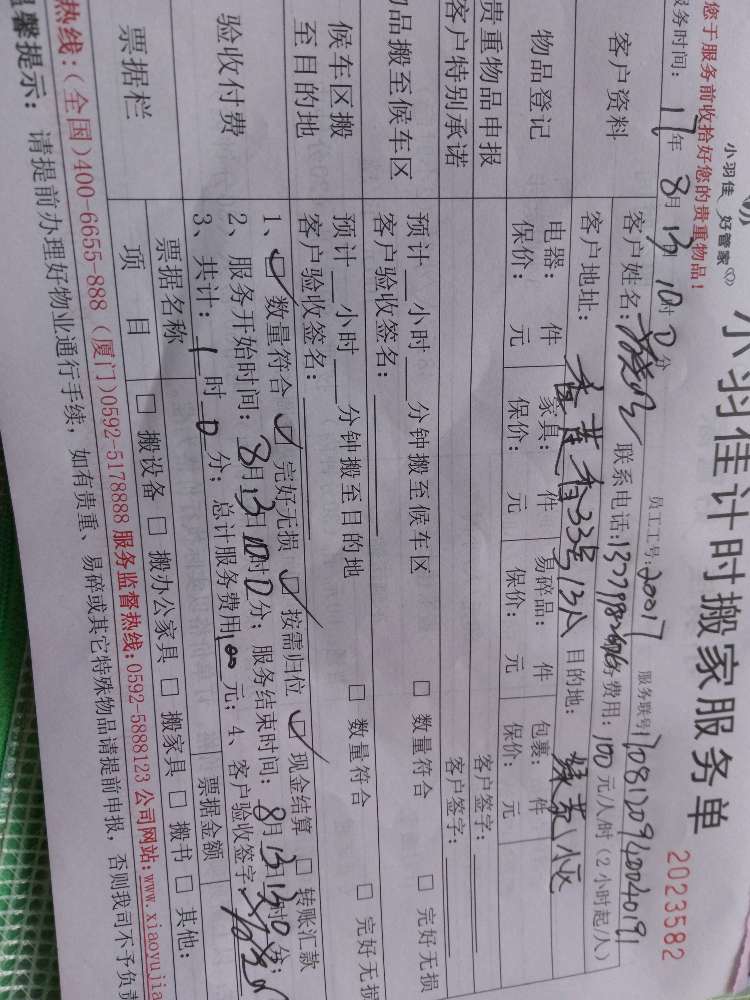 小羽佳 好管家
小羽佳计时搬家服务单
2023582
您于服务前收拾好您的贵重物品!
员工工号: 20017 服务联号
务时间: 17年 8月 13 10时 0分
客户资料
客户姓名: 联系电话: 务费用: 100 元/人/时 (2小时起/人)
客户地址: 香莲香33号13A 目的地: 小区
物品登记
电器: 件 家具: 件 易碎品: 件 包裹: 件
保价: 元 保价: 元 保价: 元 保价: 元
贵重物品申报 客户签字:
客户特别承诺 客户签字:
品搬至候车区
预计 小时 分钟搬至候车区 □ 数量符合 □ 完好无损
客户验收签名:
候车区搬至目的地
预计 小时 分钟搬至目的地 □ 数量符合 □ 完好无损
客户验收签名:
验收付费
1、☑ 数量符合 ☑ 完好无损 ☑ 按需归位 ☑ 现金结算 □ 转账汇款
2、服务开始时间: 8月13日10时0分; 服务结束时间: 8月13日 时 分;
3、共计: 1时0分; 总计服务费用100元; 4、客户验收签字:
票据栏
票据名称 票据金额
项 目 □ 搬设备 □ 搬办公家具 □ 搬家具 □ 搬书 □ 其他:
热线: (全国)400-6655-888 (厦门)0592-5178888 服务监督热线: 0592-5888123 公司网站: www.xiaoyujia
温馨提示: 请提前办理好物业通行手续, 如有贵重、易碎或其它特殊物品请提前申报, 否则我司不予负责